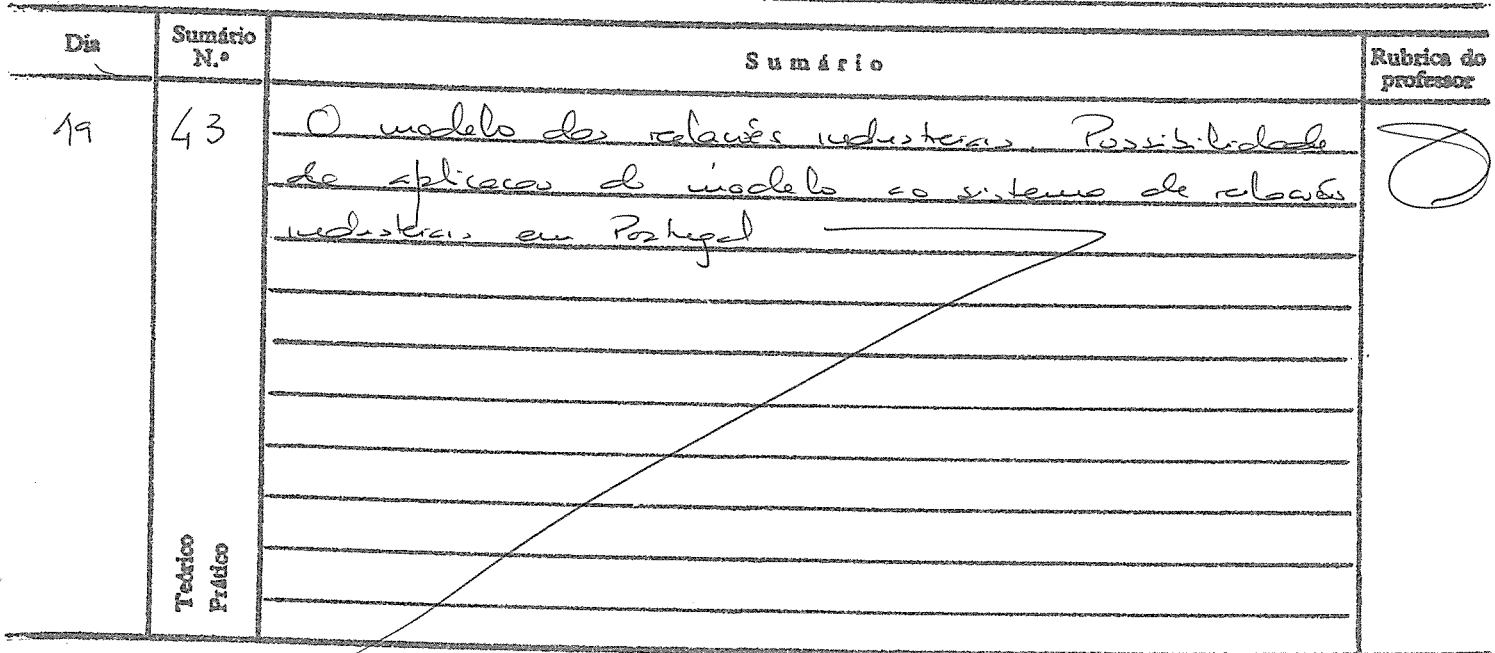 Dia
Sumário N.º
Sumário
Rubrica do professor
19
43
O modelo das relações industriais. Possibilidade
de aplicação do modelo ao sistema de relações
industriais em Portugal
Teórico
Prático